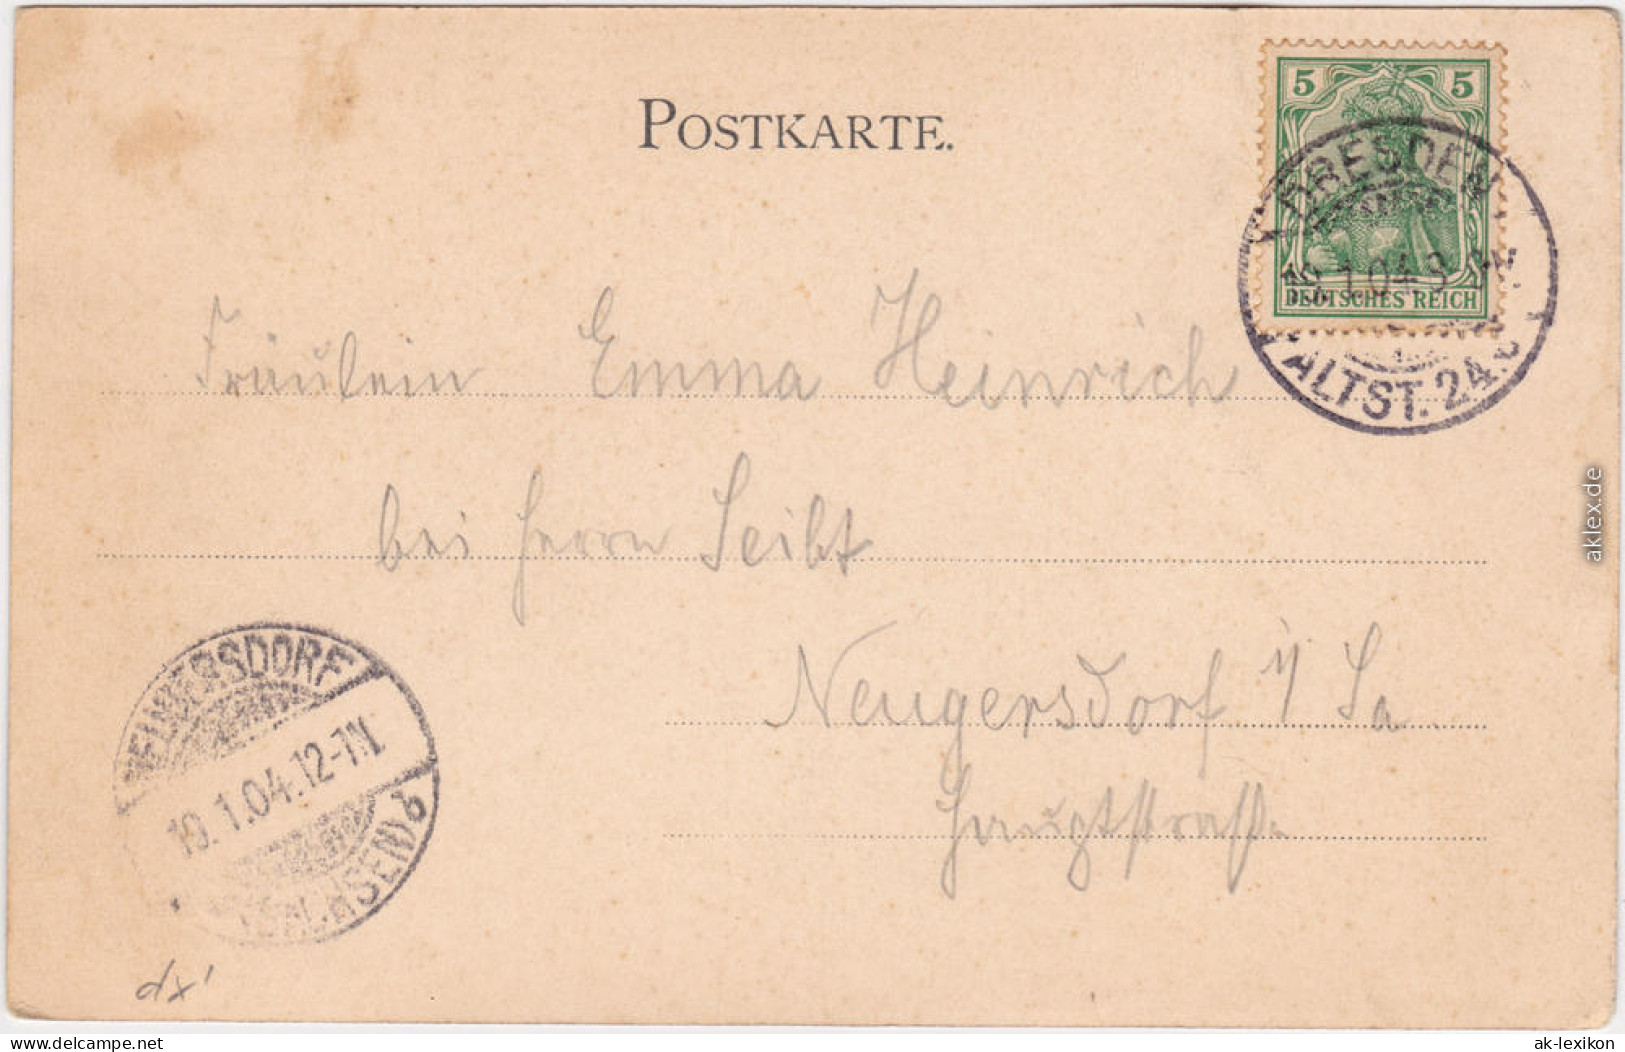 POSTKARTE.
5 5
DEUTSCHES REICH
DRESDEN
1.04.
ALTST. 24.
Fräulein Emma Heinrich
bei Herrn Seibt
Neugersdorf i/ Sa.
Hauptstraße
NEUGERSDORF
10.1.04.12-1N.
(SACHSEN) b
aklex.de
www.delcampe.net
ak-lexikon